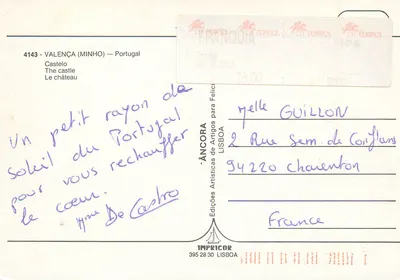 4143 - VALENÇA (MINHO) — Portugal
Castelo
The castle
Le château
Un petit rayon de
Soleil du Portugal
pour vous rechauffer
le cœur.
Mme De Castro
ÂNCORA
LISBOA
Edições Artísticas de Artigos para
IMPRICOR
395 28 30 LISBOA
Melle GUILLON
2 Rue Sem de Conflans
94220 Charenton
France